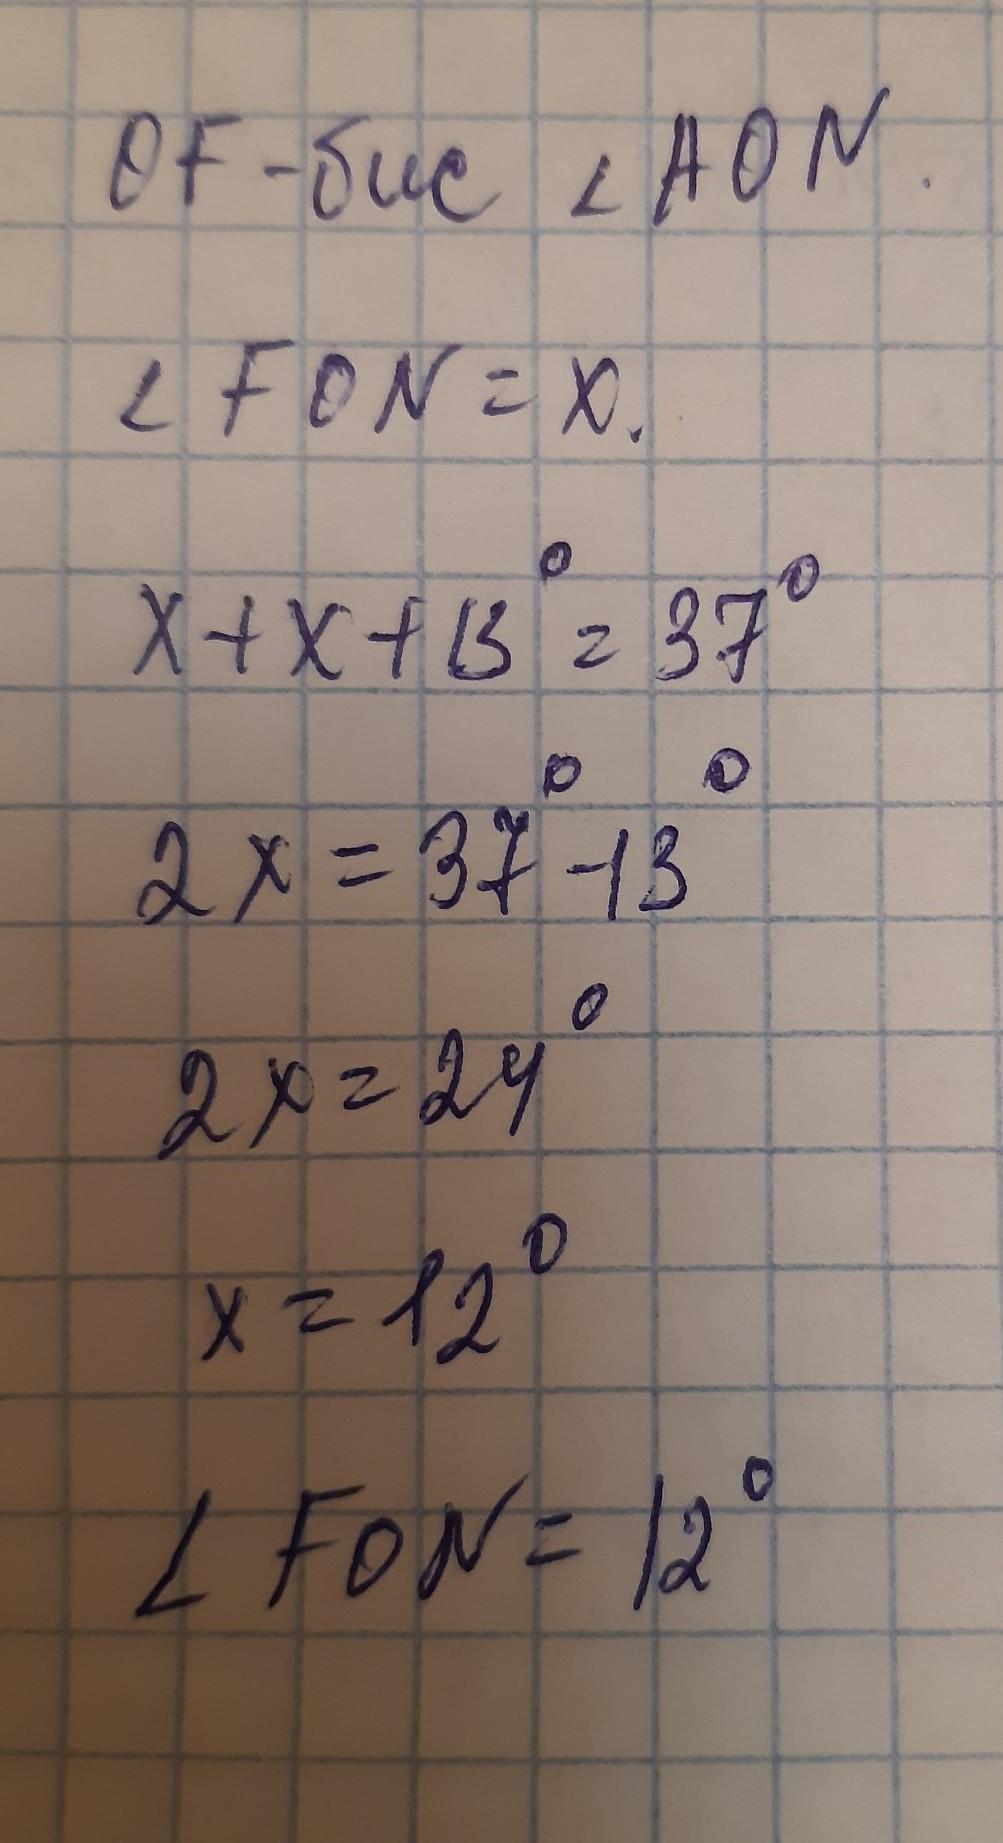 OF-бис ∠AON.
∠FON=x.
x+x+13°=37°
2x=37°-13°
2x=24°
x=12°
∠FON=12°